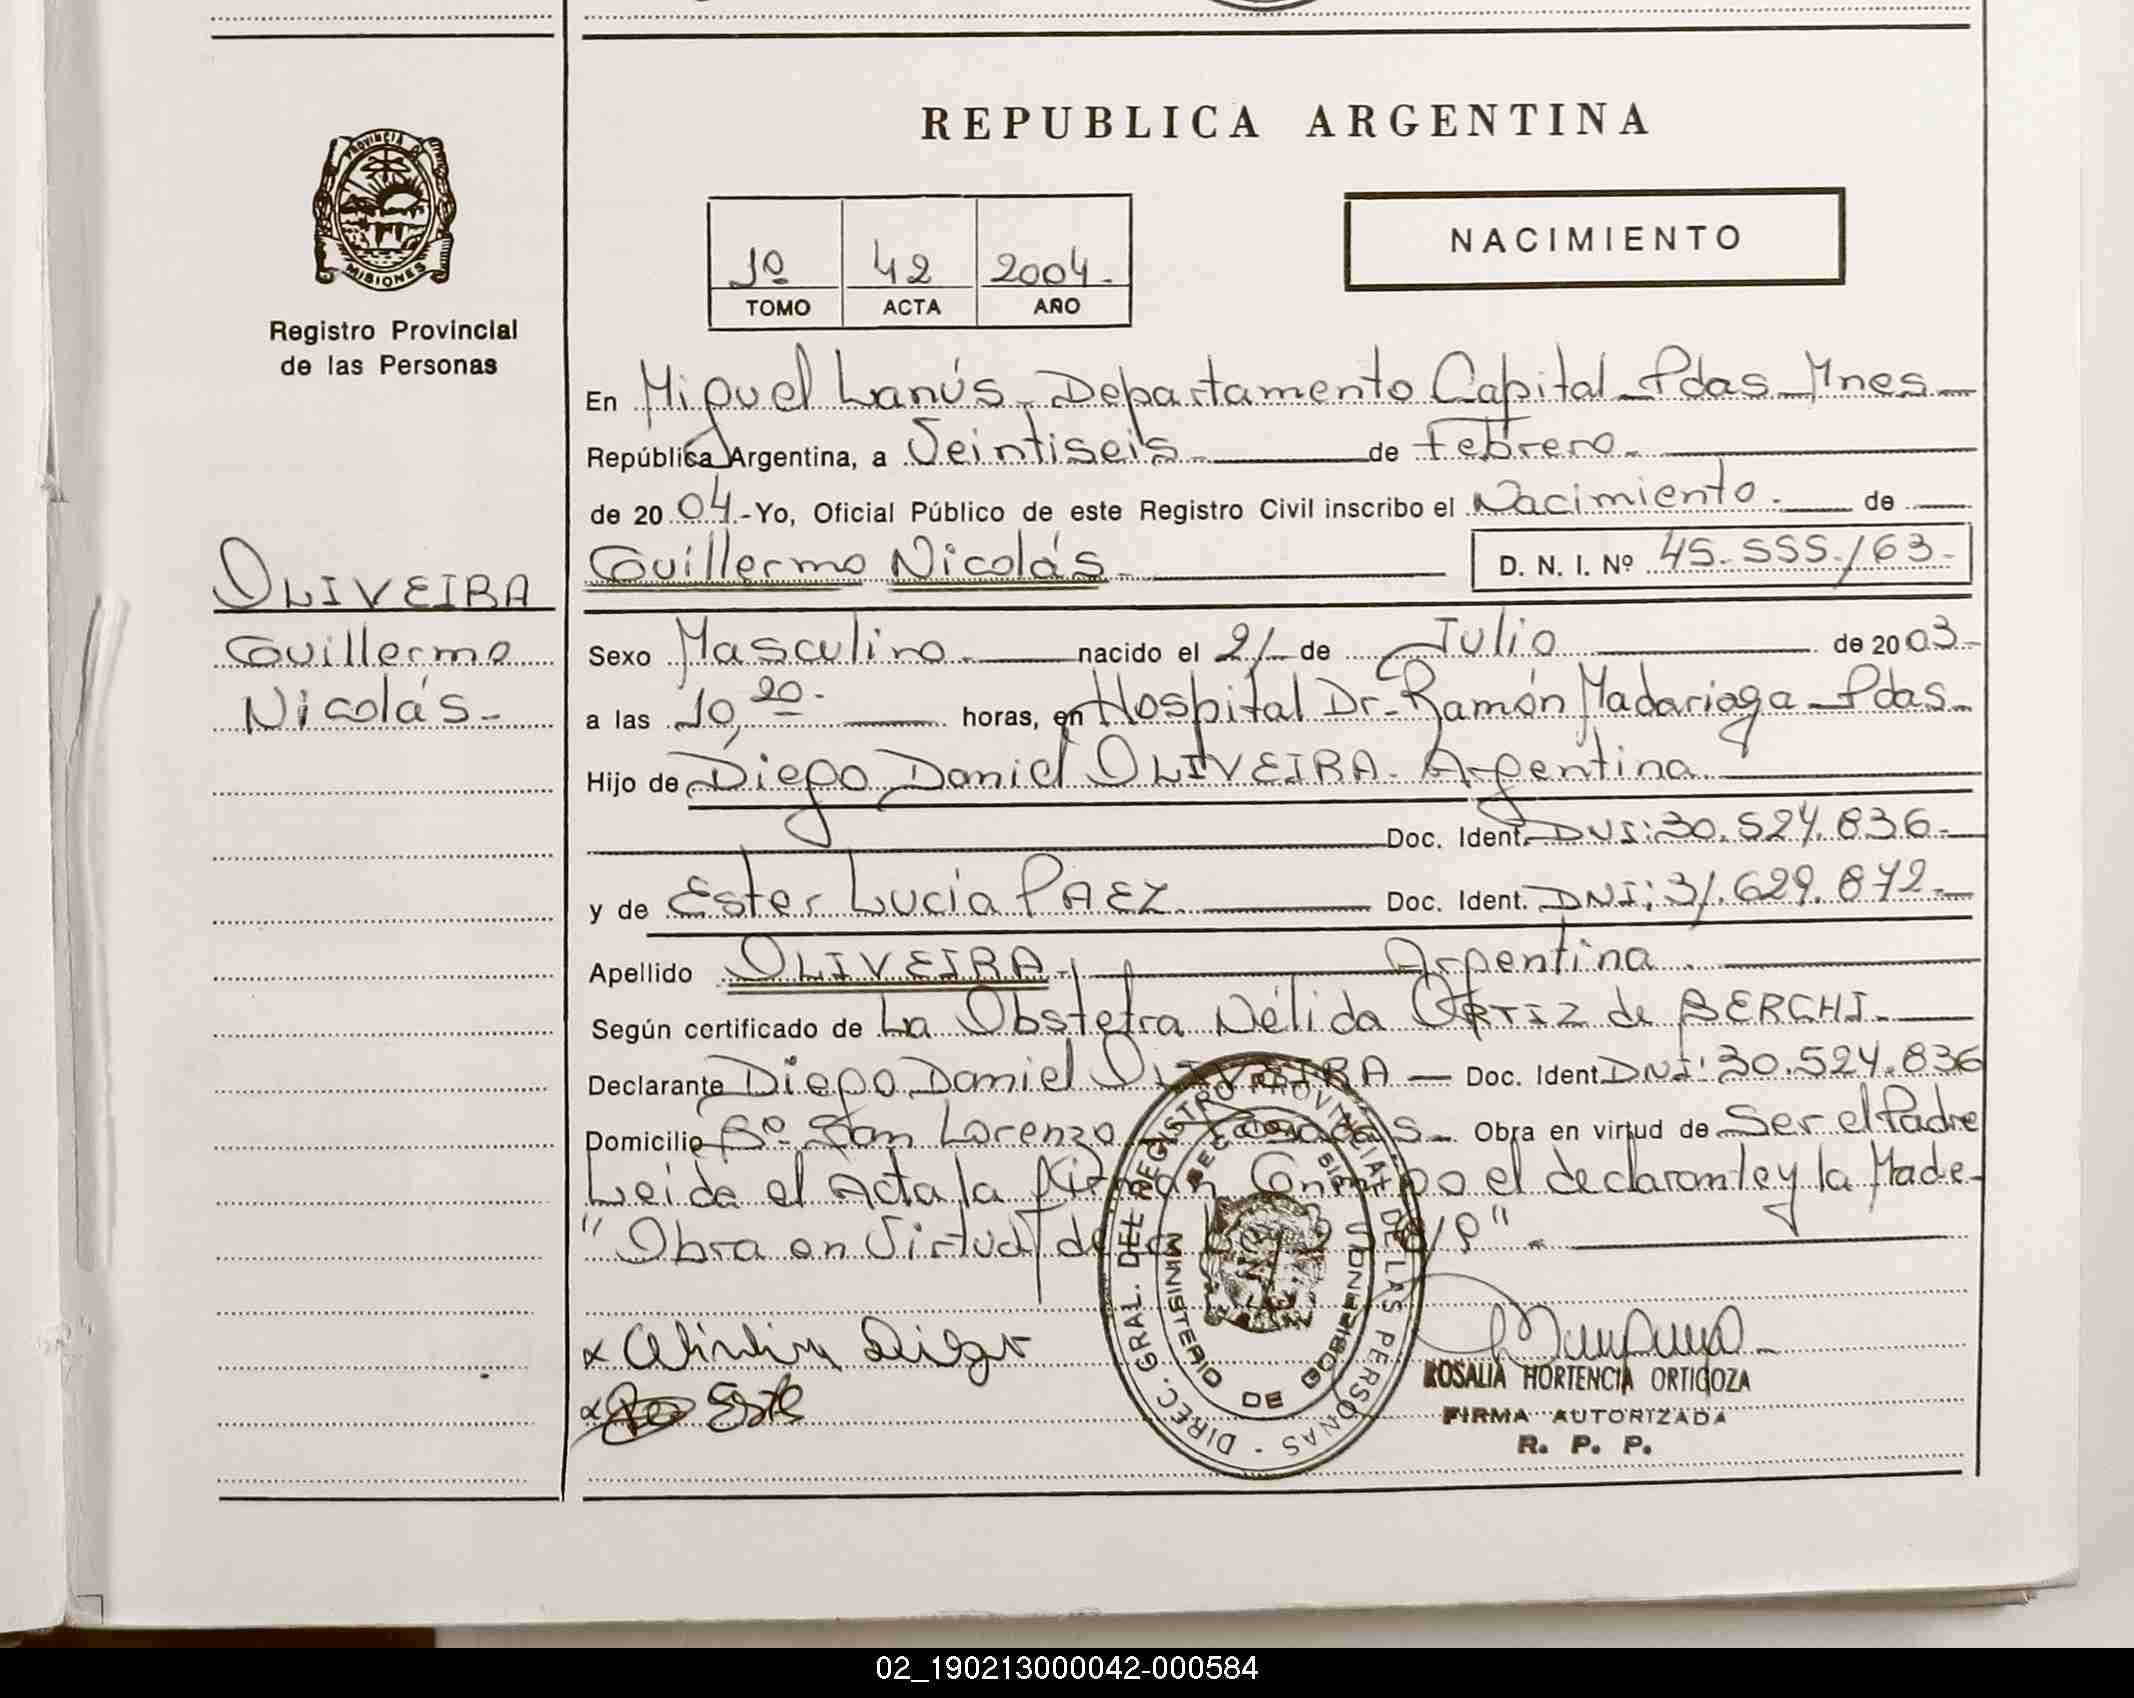 REPUBLICA ARGENTINA
PROVINCIA DE MISIONES
Registro Provincial
de las Personas
1º 42 2004.-
TOMO ACTA AÑO
NACIMIENTO
En Miguel Lanús - Departamento Capital - Pdas - Mnes -
República Argentina, a Veintiseis.- de Febrero.-
de 20 04.- Yo, Oficial Público de este Registro Civil inscribo el Nacimiento.- de
Guillermo Nicolás.- D. N. I. Nº 45.555.163.-
OLIVEIRA
Guillermo
Nicolás.-
Sexo Masculino.- nacido el 21 de Julio de 20 03.-
a las 10,20.- horas, en Hospital Dr. Ramón Madariaga - Pdas.-
Hijo de Diego Daniel OLIVEIRA - Argentina
Doc. Ident. DNI: 30.524.836.-
y de Ester Lucía PAEZ Doc. Ident. DNI: 31.629.872.-
Apellido OLIVEIRA.- Argentina
Según certificado de La Obstetra Nélida ORTIZ de BERCHI.-
Declarante Diego Daniel OLIVEIRA - Doc. Ident. DNI: 30.524.836
Domicilio Bº San Lorenzo - Obra en virtud de Ser el Padre
Leida el Acta la Firman Conmigo el declarante y la Made-
"Obra en Virtud de
DIREC. GRAL. DEL REGISTRO PROVINCIAL DE LAS PERSONAS
MINISTERIO DE GOBIERNO
MISIONES
Diego
ROSALIA HORTENCIA ORTIGOZA
FIRMA AUTORIZADA
R. P. P.
02_190213000042-000584